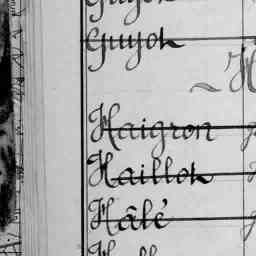 Guyot
~ H
Haigron
Haillot
Hâlé